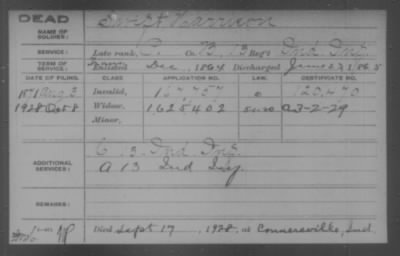 DEAD
NAME OF SOLDIER: Swift Harrison
SERVICE: Late rank, P. Co. B, 13 Reg't Ind Inf
TERM OF SERVICE: Enlisted Dec, 1864 Discharged June 27, 1865
DATE OF FILING. CLASS. APPLICATION NO. LAW. CERTIFICATE NO.
1871 Aug 3 Invalid,
1928 Oct 8 Widow, 1,625,402 A-3-2-29
Minor,
ADDITIONAL SERVICES: C 13 Ind Inf
A 13 Ind Inf
REMARKS:
Died Sept 17, 1928, at Connersville, Ind.